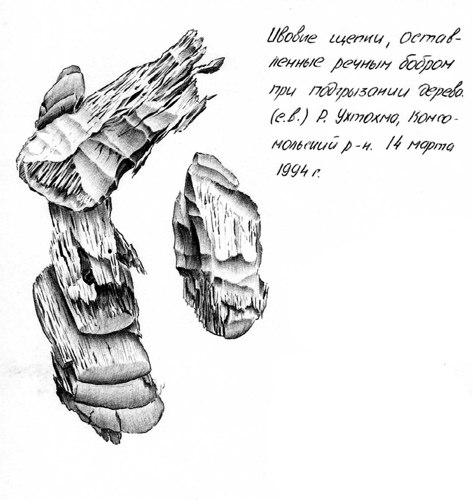 Ивовые щепки, остав-
ленные речным бобром
при подгрызании дерева.
(е.в.) Р. Ухтохма, Комсо-
мольский р-н. 14 марта
1994 г.